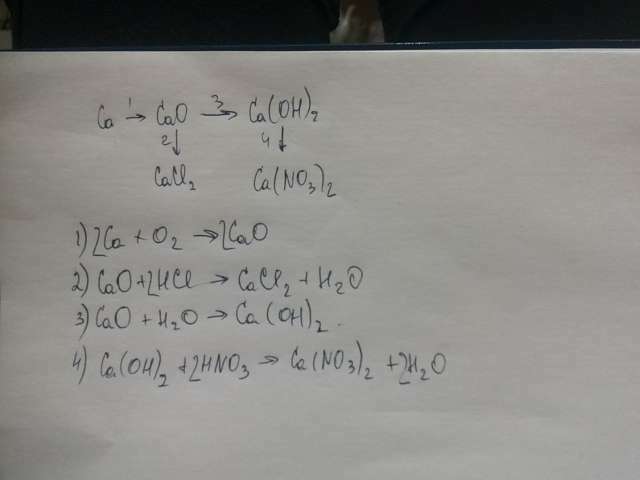 Ca 1→ CaO 3→ Ca(OH)₂
2↓ 4↓
CaCl₂ Ca(NO₃)₂
1) 2Ca + O₂ → 2CaO
2) CaO + 2HCl → CaCl₂ + H₂O
3) CaO + H₂O → Ca(OH)₂.
4) Ca(OH)₂ + 2HNO₃ → Ca(NO₃)₂ + 2H₂O